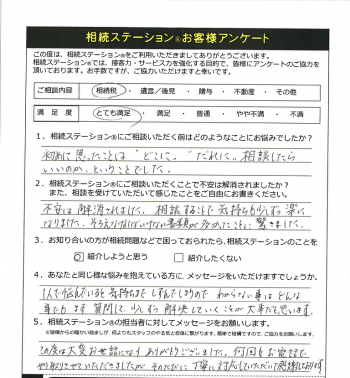 相続ステーション®お客様アンケート
この度は、相続ステーション®をご利用いただきましてありがとうございます。
相続ステーション®では、接客力・サービス力を強化する目的で、皆様にアンケートのご協力を
頂いております。お手数ですが、ご協力いただけますと幸いです。
ご相談内容 相続税 ・ 遺言／後見 ・ 贈与 ・ 不動産 ・ その他
満足度 とても満足 ・ 満足 ・ 普通 ・ やや不満 ・ 不満
1．相続ステーション®にご相談いただく前はどのようなことにお悩みでしたか？
初めに思ったことは "どこに" "だれに" 相談したら
いいのか、ということでした。
2．相続ステーション®にご相談いただくことで不安は解消されましたか？
また、相談を受けていただいて感じたことをご自由にお書きください。
不安は解消されました。相談することで気持ちも少しずつ楽に
なりました。そろえなければいけない書類が多かったことに驚きました。
3．お知り合いの方が相続問題などで困っておられたら、相続ステーションのことを
紹介しようと思う 紹介したくない
4．あなたと同じ様な悩みを抱えている方に、メッセージをいただけますでしょうか。
1人で悩んでいると気持ちまでしずんでしまうので わからない事はどんな
事でもまず質問して少しずつ解決していくことが大事だと思います。
5．相続ステーション®の担当者に対してメッセージをお願いします。
この度は大変お世話になりありがとうございました。何回もお電話で
やり取りさせていただきましたが そのたびに丁寧に対応していただいて感謝しております